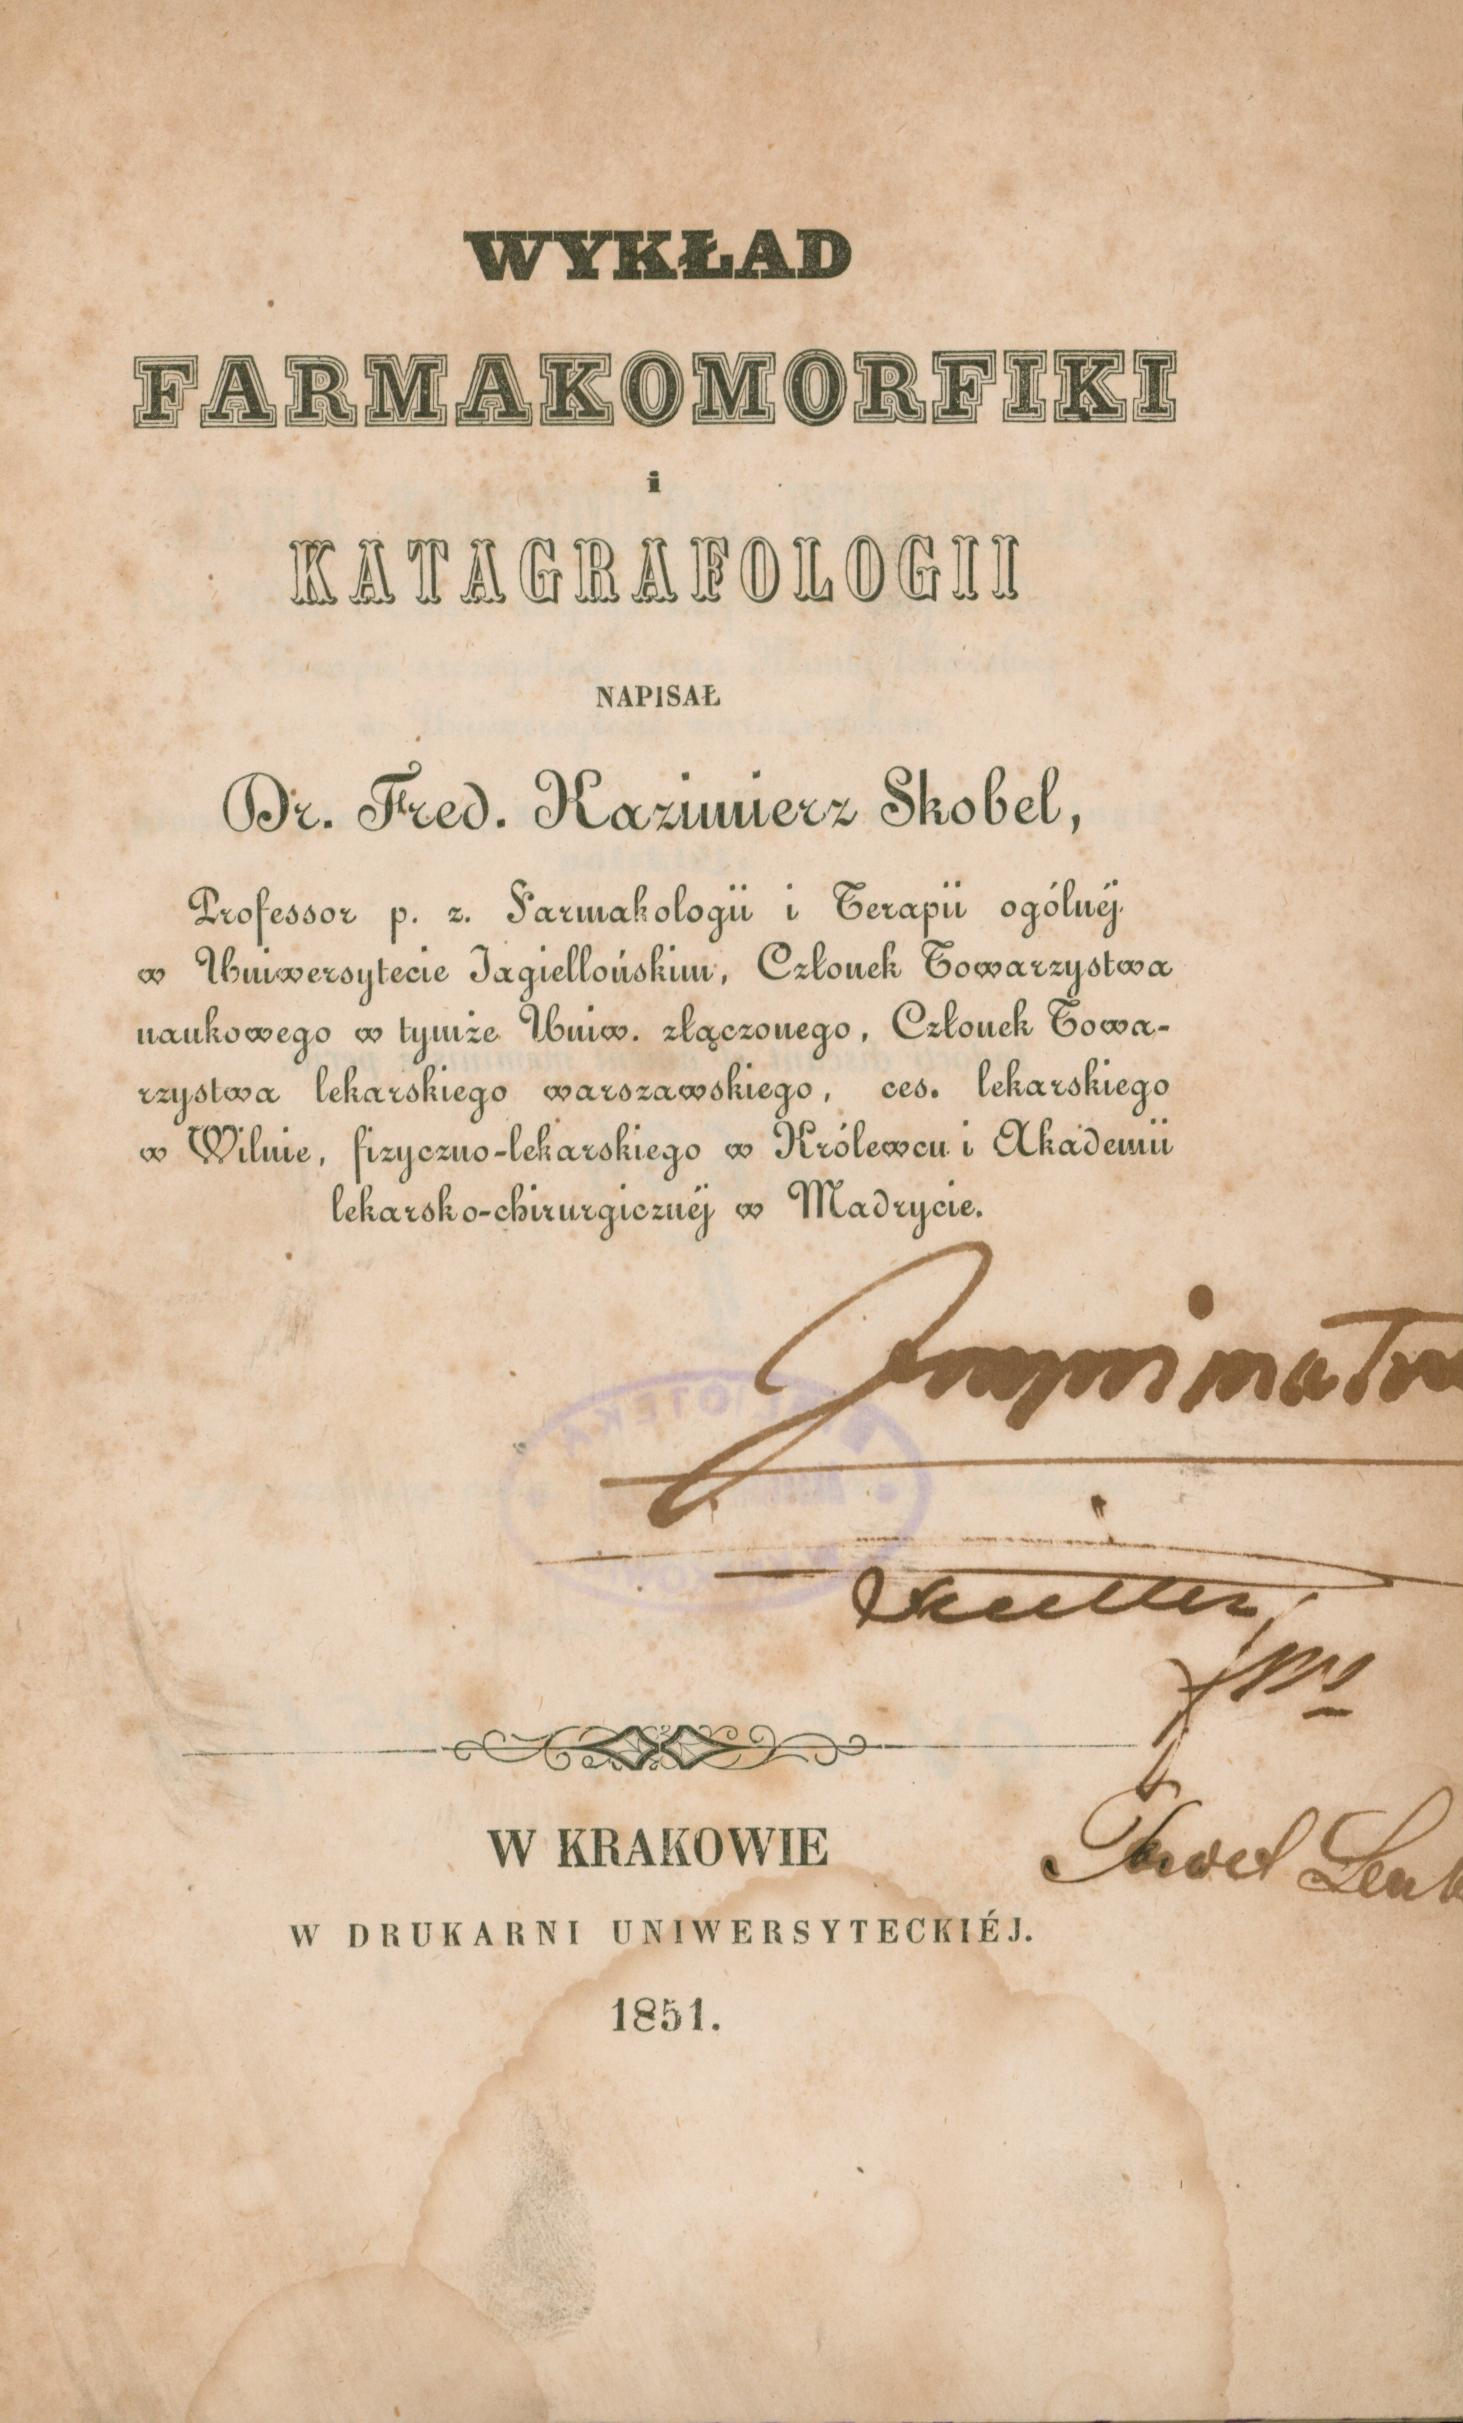 WYKŁAD
FARMAKOMORFIKI
i
KATAGRAFOLOGII
NAPISAŁ
Dr. Fred. Kazimierz Skobel,
Professor p. z. Farmakologii i Terapii ogólnéj
w Uniwersytecie Jagiellońskim, Członek Towarzystwa
naukowego w tymże Uniw. złączonego, Członek Towa-
rzystwa lekarskiego warszawskiego, ces. lekarskiego
w Wilnie, fizyczno-lekarskiego w Królewcu i Akademii
lekarsko-chirurgicznéj w Madrycie.
Imprimatur
BIBLIOTEKA
W KRAKOWIE
Paweł
W DRUKARNI UNIWERSYTECKIÉJ.
1851.